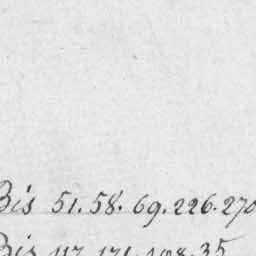 Bis 51. 58. 69. 226. 270
Bis 117. 171. 198. 35